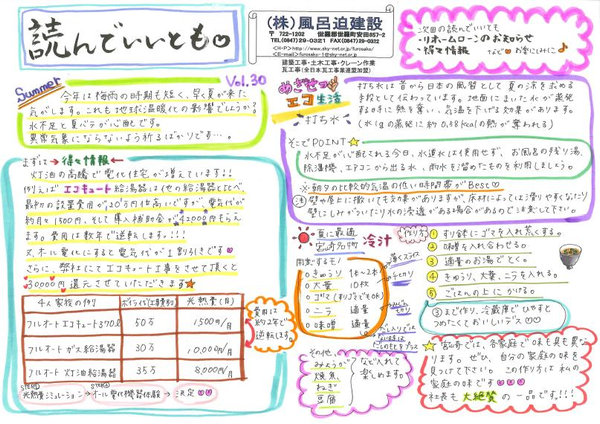 読んでいいとも
(株)風呂迫建設
〒722-1202 世羅郡世羅町安田857-2
TEL(0847)29-0321 FAX(0847)29-0021
<HP>http://www.sky-net.or.jp/furosako/
furosako@sky-net.or.jp
建築工事・土木工事・クレーン作業
瓦工事(全日本瓦工事業連盟加盟)
次回の読んでいいとも
・リホームローンのお知らせ
・得々情報 などお楽しみに
Summer Vol.30
今年は梅雨の時期も短く、早く夏が来た
気がします。これも地球温暖化の影響でしょうか?
水不足と夏バテが心配です。
異常気象にならないよう祈るばかりです…。
めざせ
エコ生活
打ち水
打ち水は昔から日本の風習として夏の涼を求める
手段として伝わっています。地面にまいた水が蒸発
する時に熱を奪い、気温を下げる効果があります。
(水1gの蒸発に約0.58kcalの熱が奪われる)
そこでPOINT☆
水不足が心配される今日、水道水は使用せず、お風呂の残り湯、
除湿機、エアコンから出る水、雨水を溜めたものを利用しましょう。
※朝夕の比較的気温の低い時間帯がBest
壁や屋上に撒いても効果がありますが、床材によっては滑りやすくなったり
壁にしみがついたり水の浸透がある場合があるので注意して下さい。
まずは→得々情報←
灯油の高騰で電化住宅が増えています!!
例えばエコキュート給湯器は他の給湯器と比べ、
最初の設置費用が20万円位高いですが、電気代が
約月々1500円、そして導入補助金が42000円もらえ
ます。費用は数年で逆転します。!!!
オール電化にすると電気代が1割引きです
さらに、弊社にてエコキュート工事をさせて頂くと
30000円還元させていただきます★
4人家族の例 ボイラ代(工事費別) 光熱費(月)
フルオートエコキュート370ℓ 50万 1500円/月
フルオート ガス給湯器 30万 10,000円/月
フルオート 灯油給湯器 35万 8,000円/月
費用は
約2年で
逆転します。
STEP① STEP②
光熱費シミュレーション→オール電化機器体験→決定
夏に最適
宮崎名物 冷汁
用意するもの
○きゅうり 1本~2本
○大葉 10枚
○ゴマ(すりゴマでもOK)
○ニラ 適量
○味噌 適量
薄くスライス
千切り
その他、
みょうが
焼魚
ねぎ
豆腐
など入れて
楽しめます。
作り方
① すり鉢にゴマを入れ荒くする。
② 味噌を入れ合わせる。
③ 適量のお湯でとく。
④ きゅうり、大葉、ニラを入れる。
⑤ ごはんの上にかける
③まで作り、冷蔵庫で冷やすと
つめたくておいしいデス
☆宮崎では、各家庭で味も具も異な
ります。ぜひ、自分の家庭の味を
見つけて下さい。この作り方は私の
家庭の味です
社長も大絶賛の一品です!!!